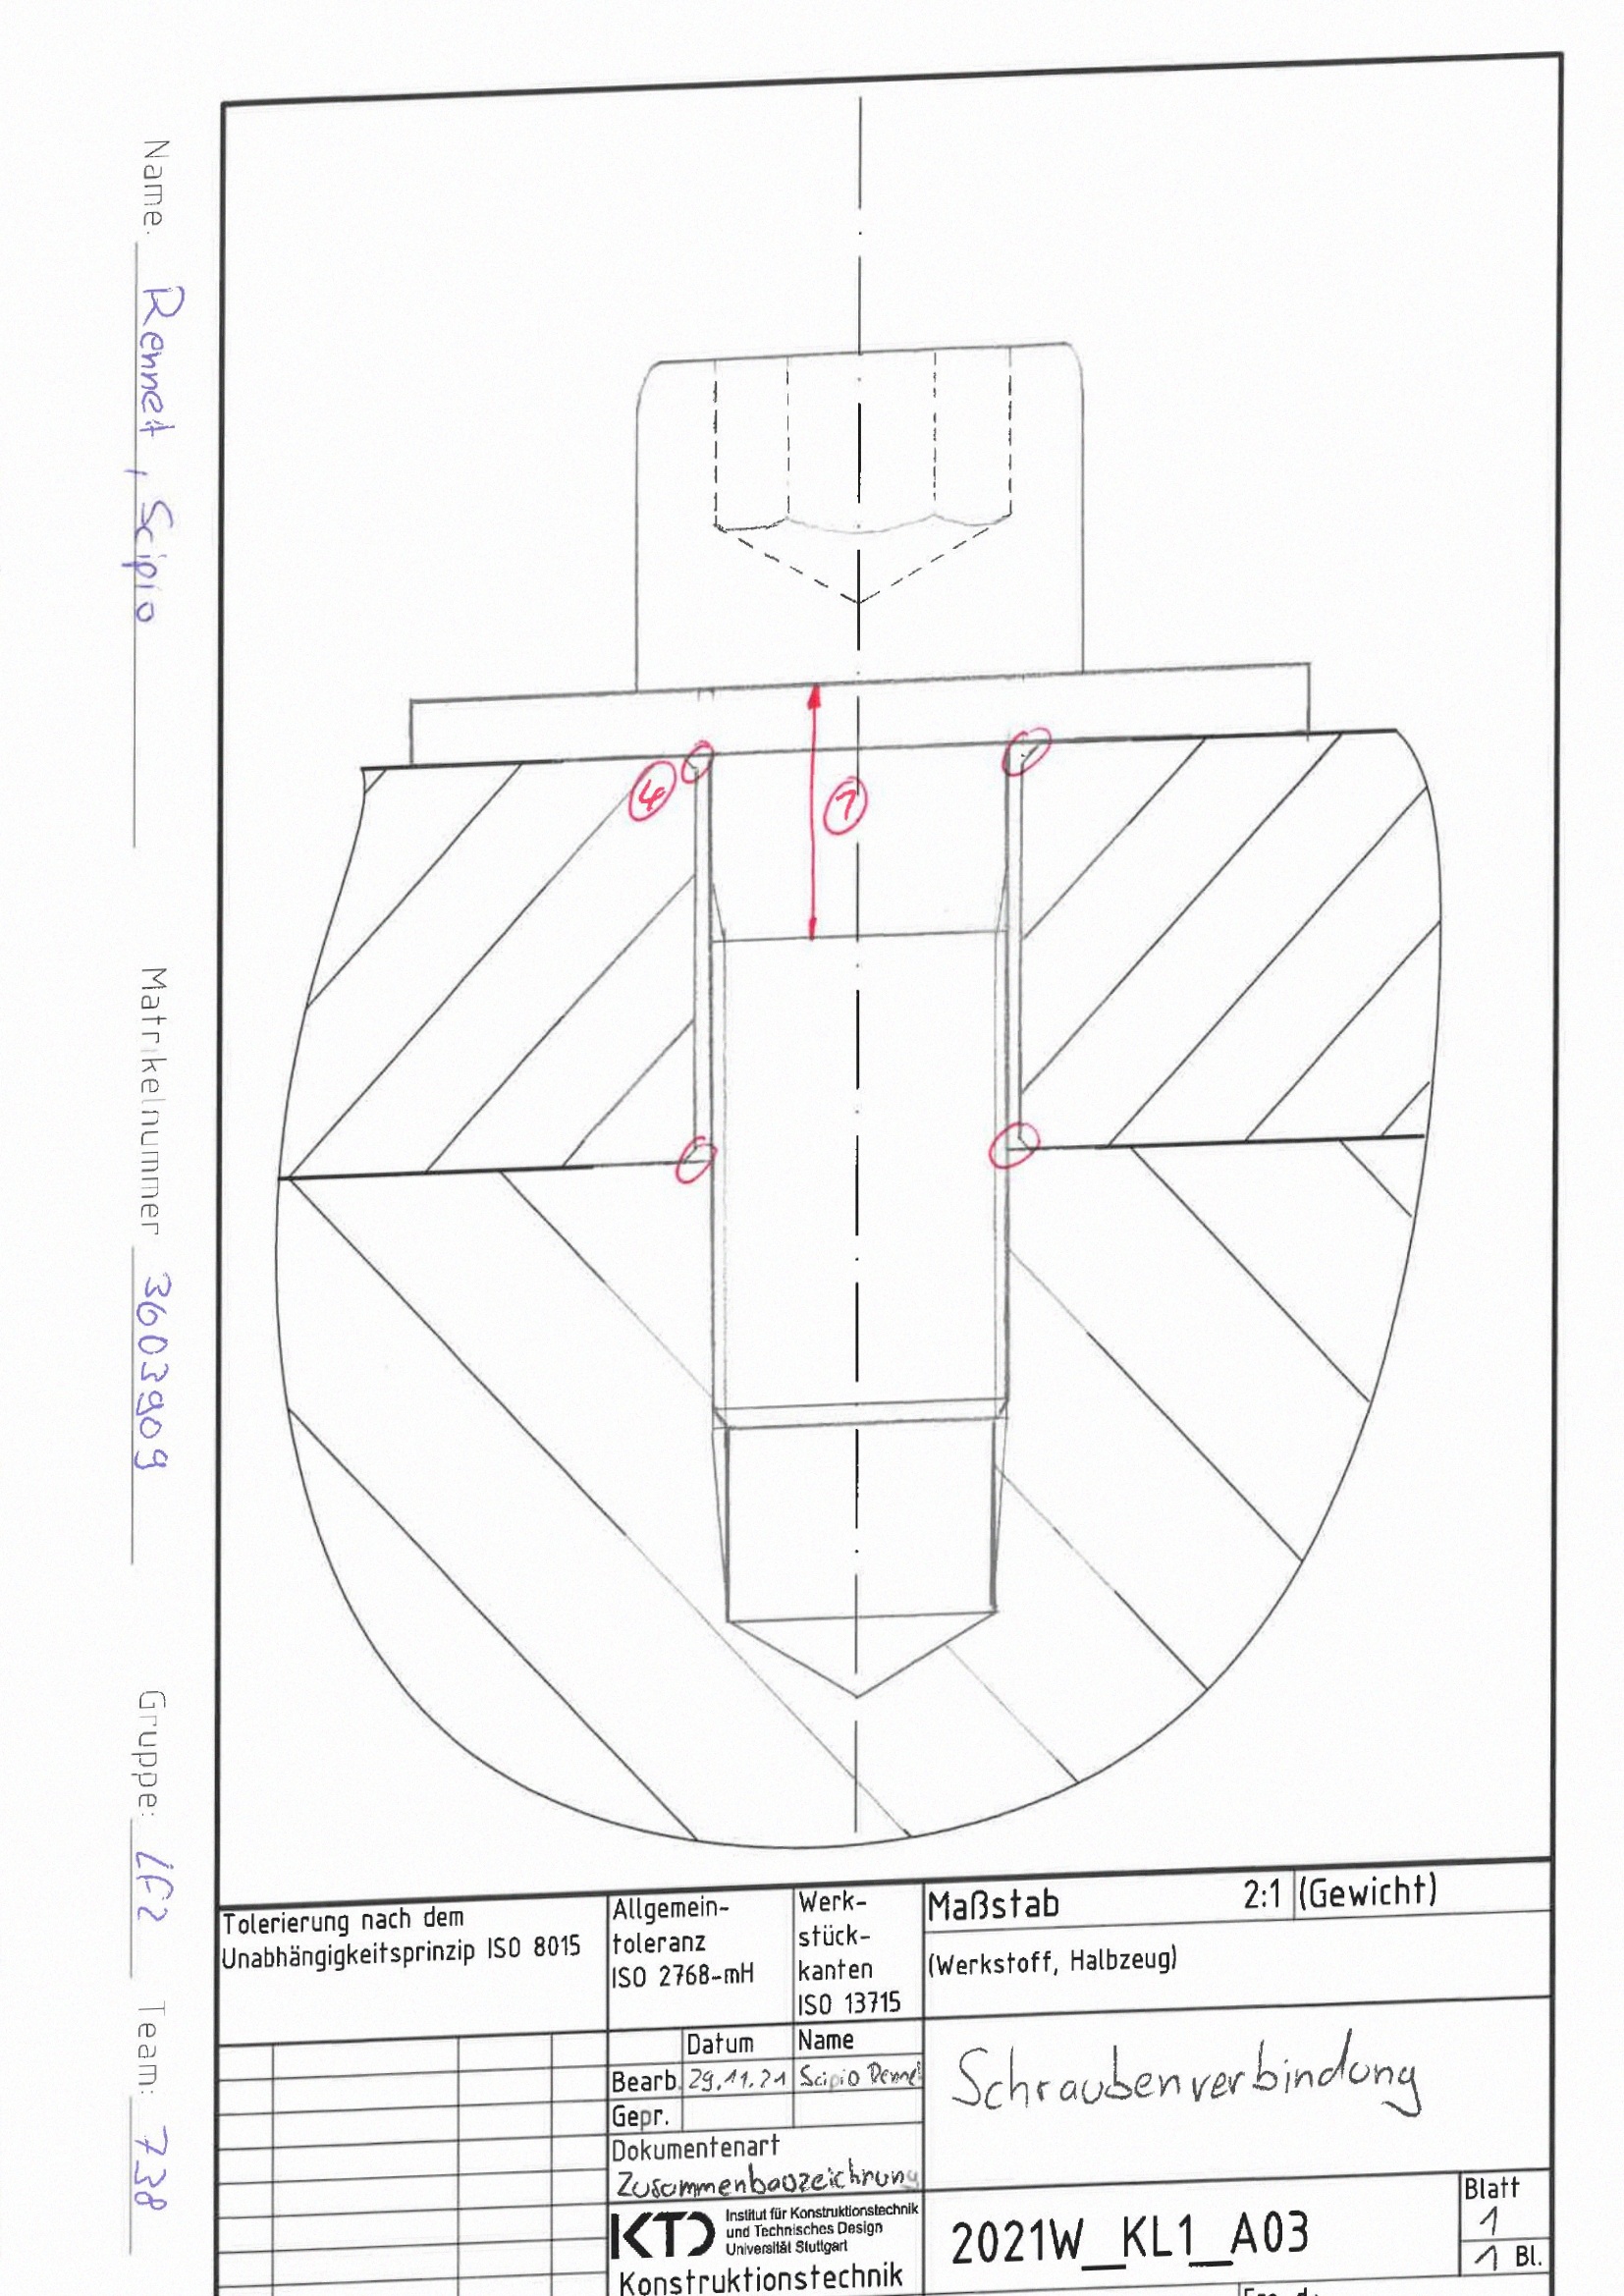 Name:
Scipio
Matrikelnummer 3603909
Gruppe: LF2
Team: 738
4
1
Tolerierung nach dem
Unabhängigkeitsprinzip ISO 8015
Allgemein-
toleranz
ISO 2768-mH
Werk-
stück-
kanten
ISO 13715
Maßstab 2:1 (Gewicht)
(Werkstoff, Halbzeug)
Datum Name
Bearb. 29.11.21 Scipio
Gepr.
Dokumentenart
Zusammenbauzeichnung
Schraubenverbindung
KTD
Institut für Konstruktionstechnik
und Technisches Design
Universität Stuttgart
Konstruktionstechnik
2021W_KL1_A03
Blatt
1
1 Bl.